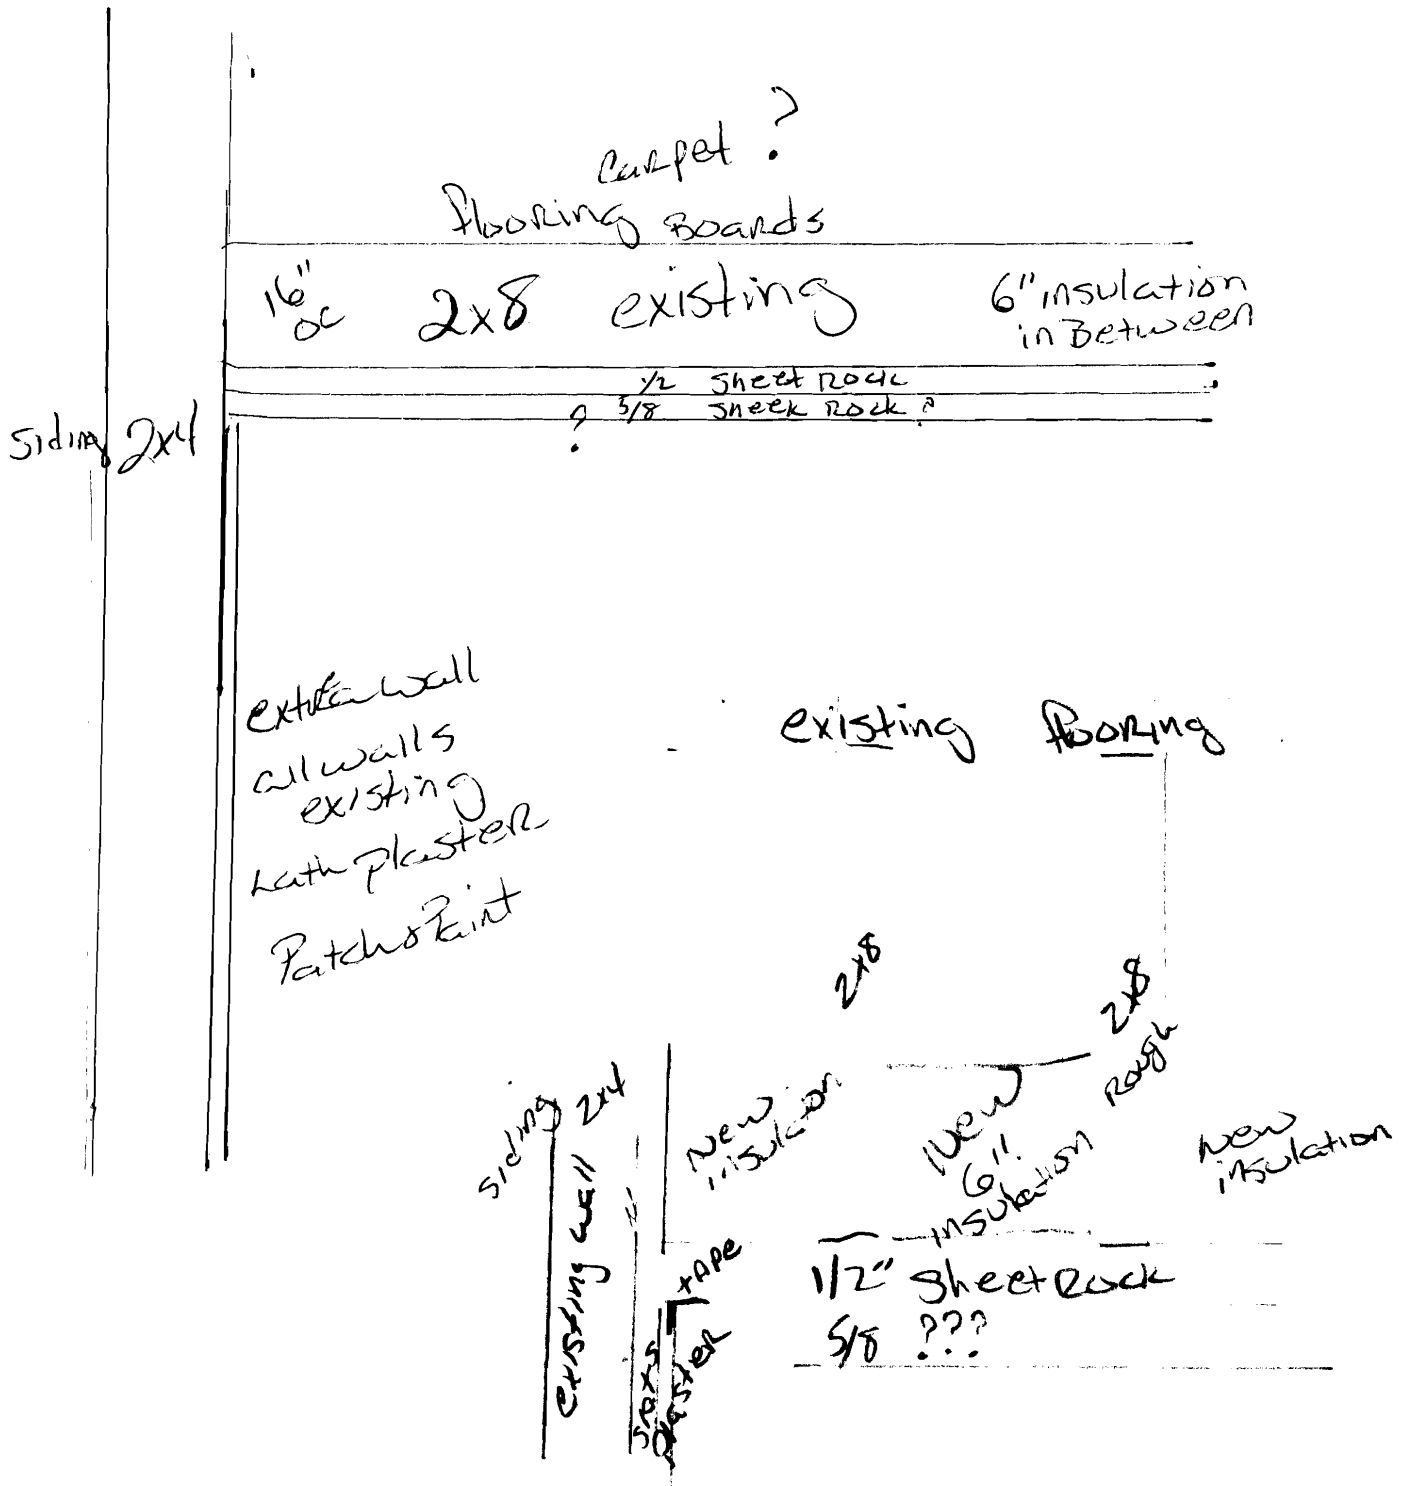 Carpet ?
flooring Boards
16" OC
2x8 existing
6" insulation
in Between
1/2 Sheet Rock
5/8 Sheek Rock ?
?
Siding 2x4
wall
all walls
existing
Lath plaster
Patch & Paint
existing flooring
2x8
2x8
Rough
Siding
2x4
existing wall
New
insulation
New
6"
insulation
New
insulation
tape
plaster
1/2" Sheet Rock
5/8 ???